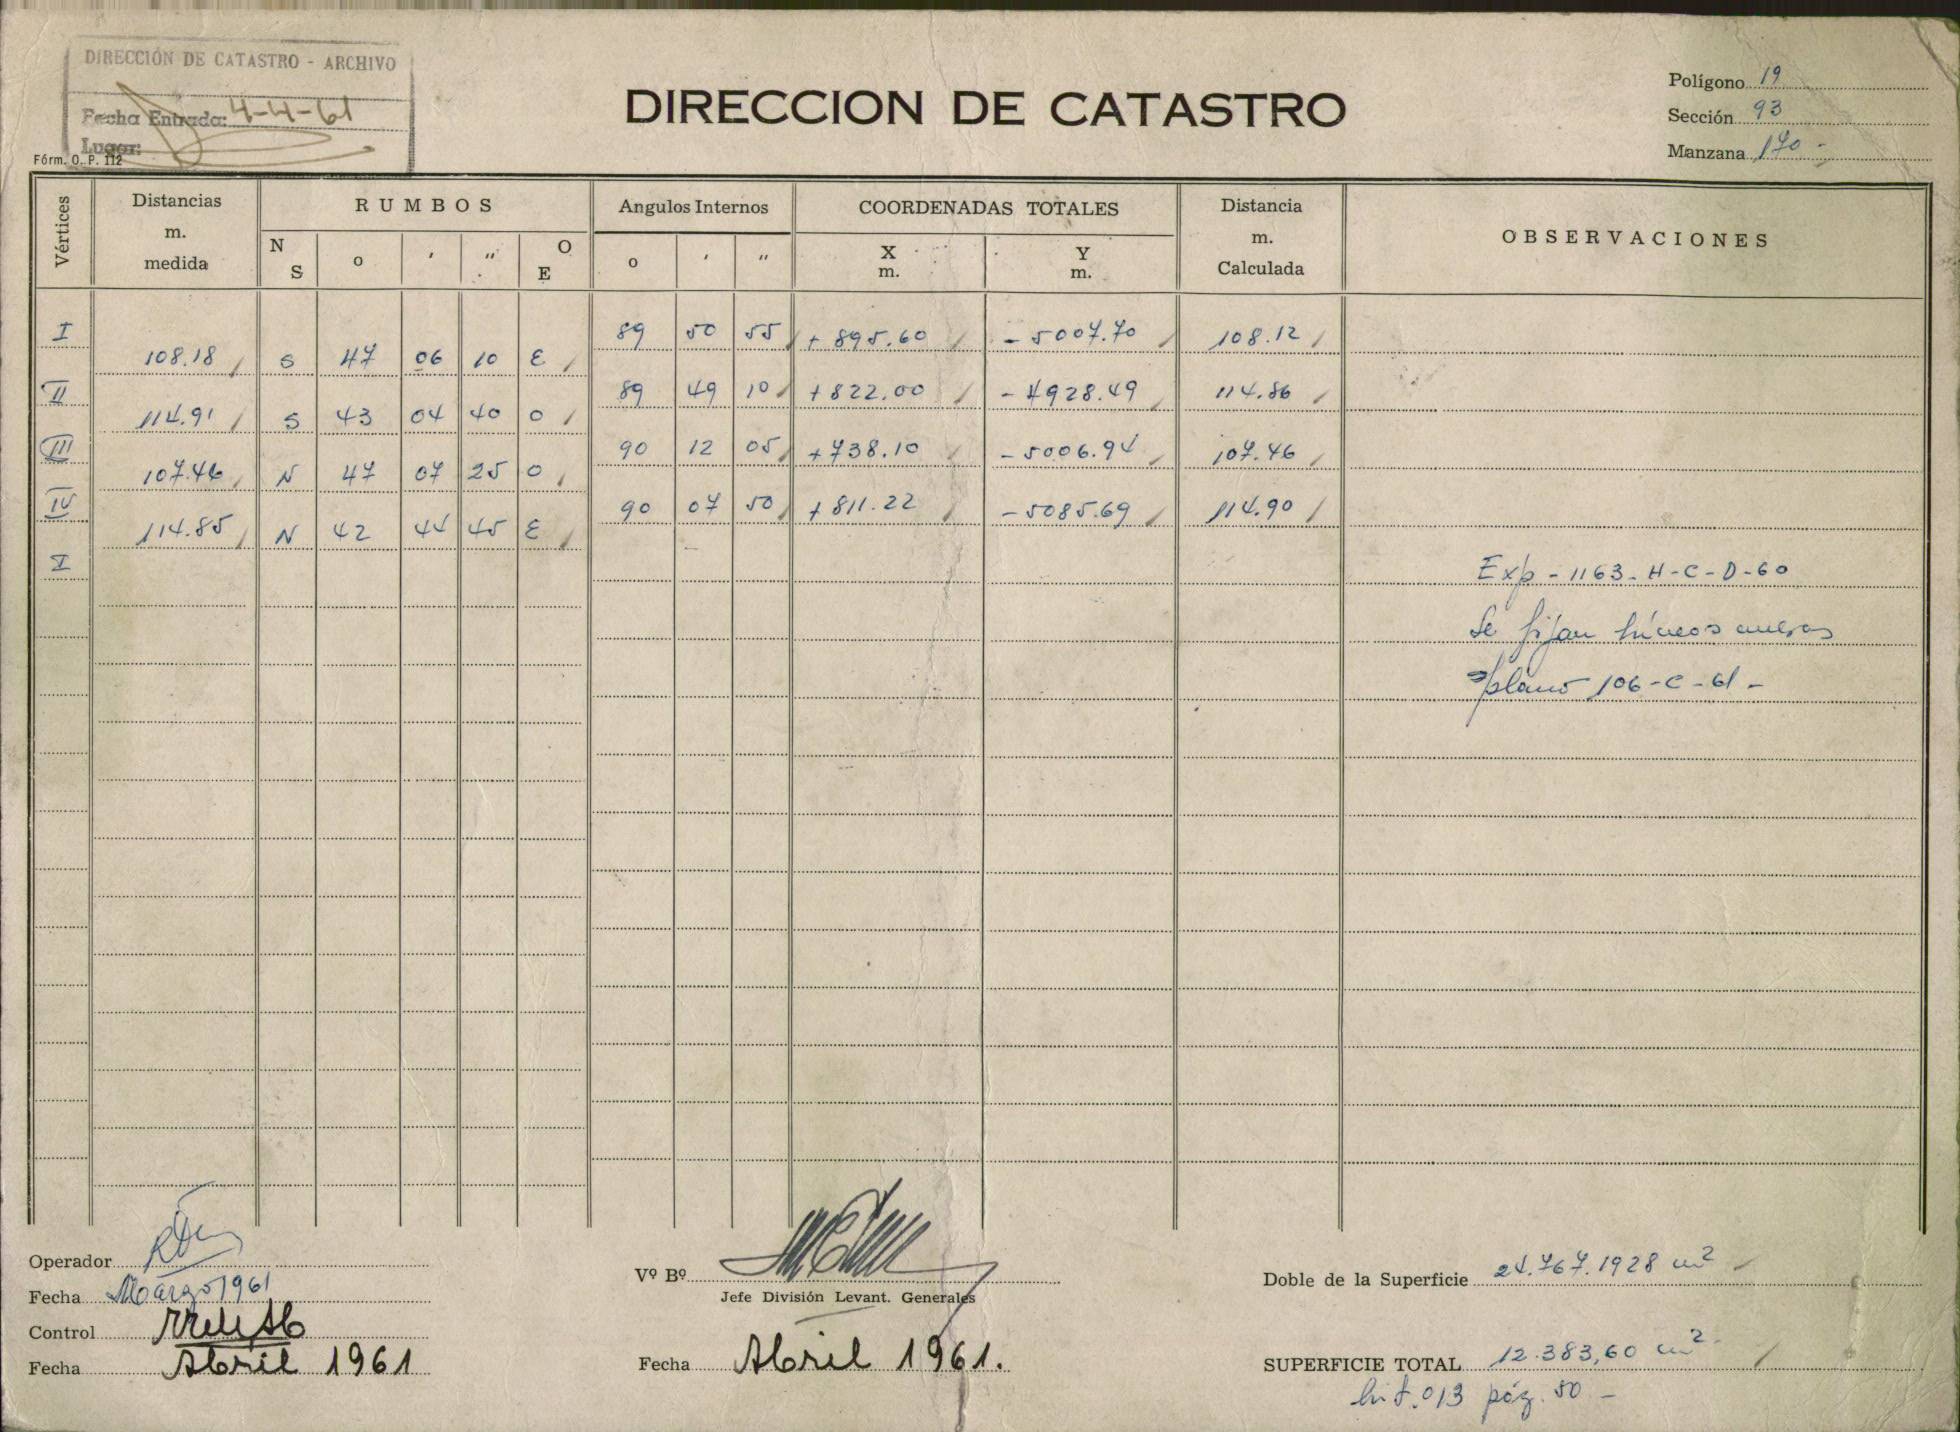 DIRECCIÓN DE CATASTRO - ARCHIVO
Fecha Entrada: 4-4-61
Lugar:
Fórm. O. P. 112
DIRECCION DE CATASTRO
Polígono 19
Sección 93
Manzana 170 -
Vértices
Distancias m. medida
RUMBOS
N S
o
′
″
O E
Angulos Internos
o
′
″
COORDENADAS TOTALES
X m.
Y m.
Distancia m. Calculada
OBSERVACIONES
I 89 50 55 + 895.60 - 5007.70 108.12
108.18 S 47 06 10 E
II 89 49 10 + 822.00 - 4928.49 114.86
114.91 S 43 04 40 O
III 90 12 05 + 738.10 - 5006.94 107.46
107.46 N 47 07 25 O
IV 90 07 50 + 811.22 - 5085.69 114.90
114.85 N 42 44 45 E
I
Exp - 1163 - H - C - D - 60
Se fijan líneas nuevas
plano 106 - C - 61 -
Operador
Fecha Marzo 1961
Control
Fecha Abril 1961
Vº Bº
Jefe División Levant. Generales
Fecha Abril 1961.
Doble de la Superficie 24.767.1928 m²
SUPERFICIE TOTAL 12.383,60 m²
013 pág. 50 -